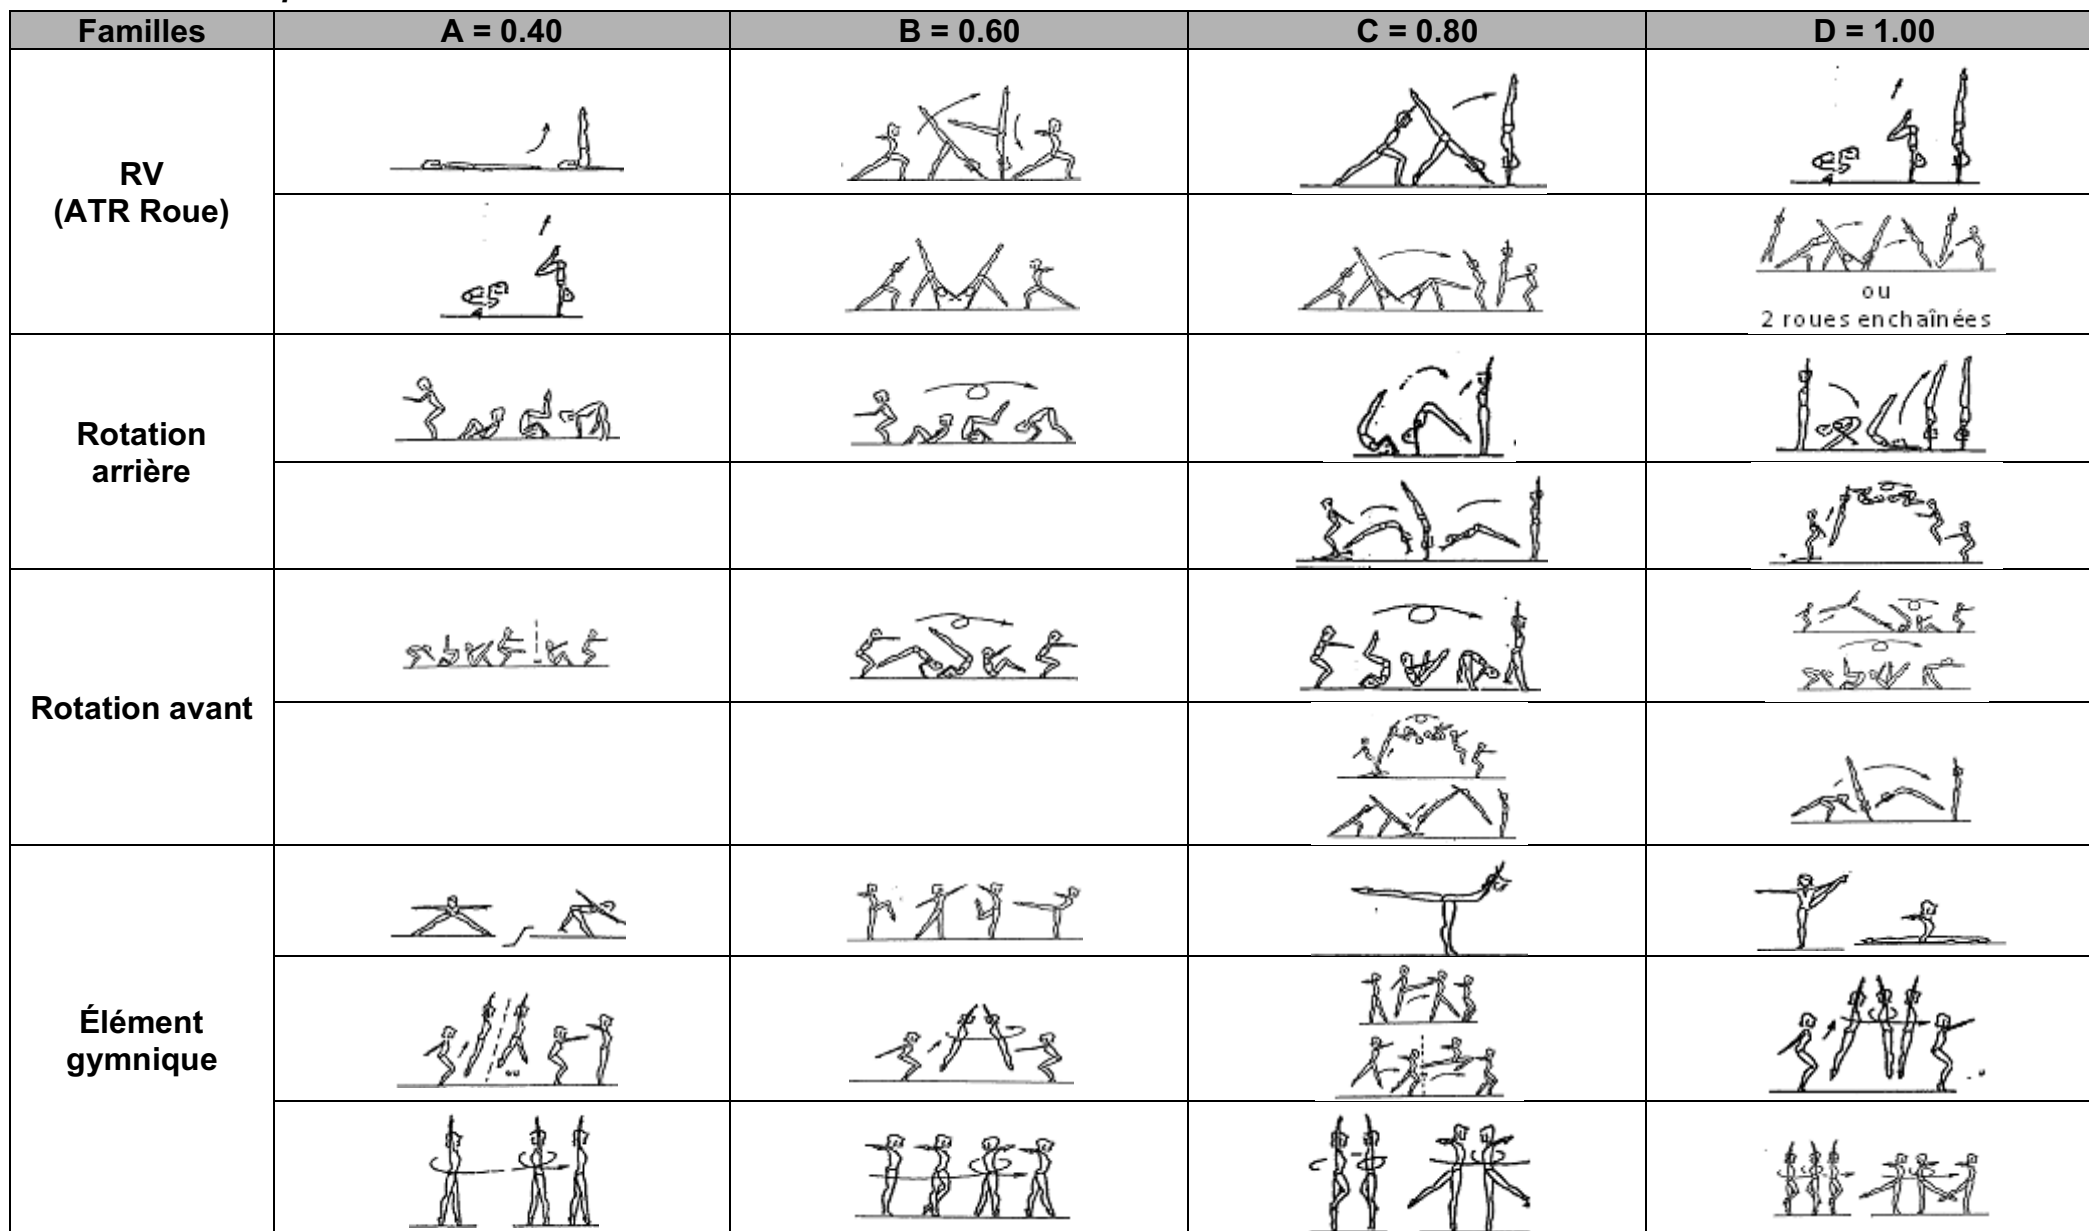 Familles
A = 0.40
B = 0.60
C = 0.80
D = 1.00
RV
(ATR Roue)
ou
2 roues enchaînées
Rotation
arrière
Rotation avant
Élément
gymnique
ou